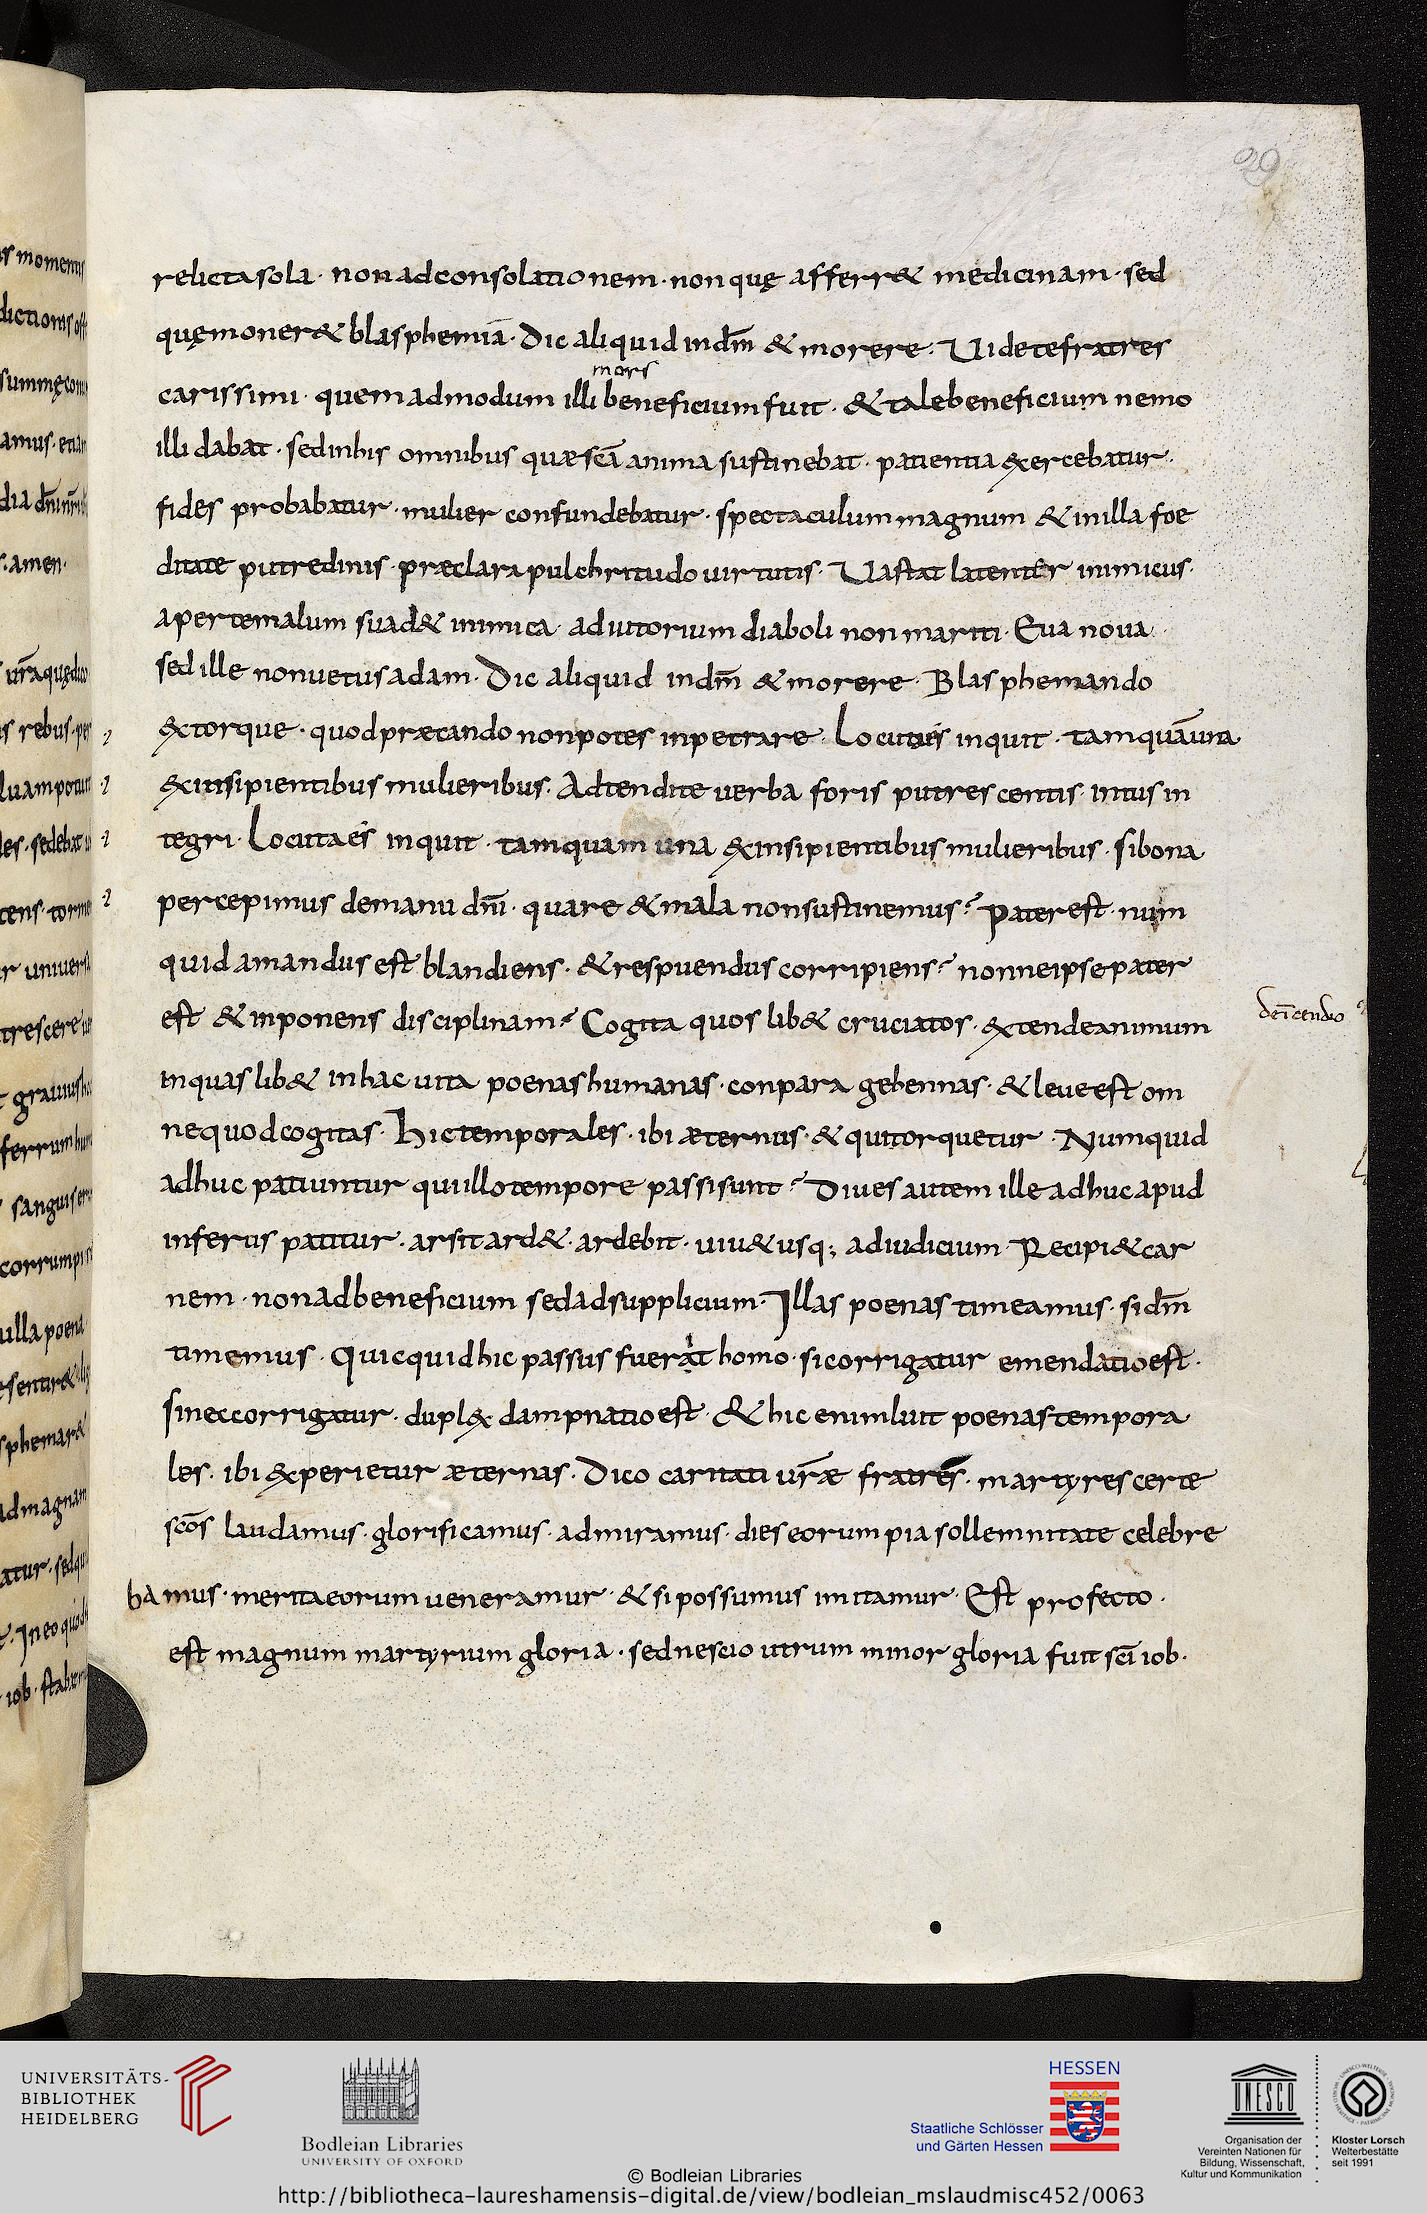 29
relicta sola · non ad consolationem · non quę afferr& medicinam · sed
quę moner& blasphemiā · Dic aliquid in dm̄ & morere · Uidete fratres
mors
carissimi · quemadmodum illi beneficium fuit · & tale beneficium nemo
illi dabat · sed in his omnibus quae scā anima sustinebat · patientia exercebatur ·
fides probabatur · mulier confundebatur · spectaculum magnum & in illa foe
ditate putredinis · praeclara pulchritudo uirtutis · Uastat latenter inimicus ·
aperte malum suad& inimica · adiutorium diaboli non mariti · Eua noua ·
sed ille non uetus adam · Dic aliquid in dm̄ & morere · Blasphemando
extorque · quod praecando non potes inpetrare · Locuta es inquit · tamquā una
ex insipientibus mulieribus · Adtendite uerba foris putrescentis · intus in
tegri · Locuta es inquit · tamquam una ex insipientibus mulieribus · si bona
percepimus de manu dnī · quare & mala non sustinemus? Pater est · num
quid amandus est blandiens · & respuendus corripiens? nonne ipse pater
est & inponens disciplinam? Cogita quos lib& cruciatos · extende animum
in quas lib& in hac uita poenas humanas · conpara gehennas · & leue est om
ne quod cogitas · Hic temporales · ibi aeternus · & qui torquetur · Numquid
adhuc patiuntur qui illo tempore passi sunt? Diues autem ille adhuc apud
inferus patitur · arsit ard& · ardebit · uiu& usq; ad iudicium · Recipi& car
nem · non ad beneficium sed ad supplicium · Illas poenas timeamus · si dm̄
timemus · Quicquid hic passus fuerat homo · si corrigatur emendatio est ·
si nec corrigatur · duplex dampnatio est · & hic enim luit poenas tempora
les · ibi experietur aeternas · Dico caritati urāe fratres · martyres certe
scōs laudamus · glorificamus · admiramus · dies eorum pia sollemnitate celebre
bamus · merita eorum ueneramur · & si possumus imitamur · Est profecto ·
est magnum martyrium gloria · sed nescio utrum minor gloria fuit scī iob ·
UNIVERSITÄTS-
BIBLIOTHEK
HEIDELBERG
Bodleian Libraries
UNIVERSITY OF OXFORD
HESSEN
Staatliche Schlösser
und Gärten Hessen
UNESCO
Organisation der
Vereinten Nationen für
Bildung, Wissenschaft,
Kultur und Kommunikation
Kloster Lorsch
Welterbestätte
seit 1991
© Bodleian Libraries
http://bibliotheca-laureshamensis-digital.de/view/bodleian_mslaudmisc452/0063